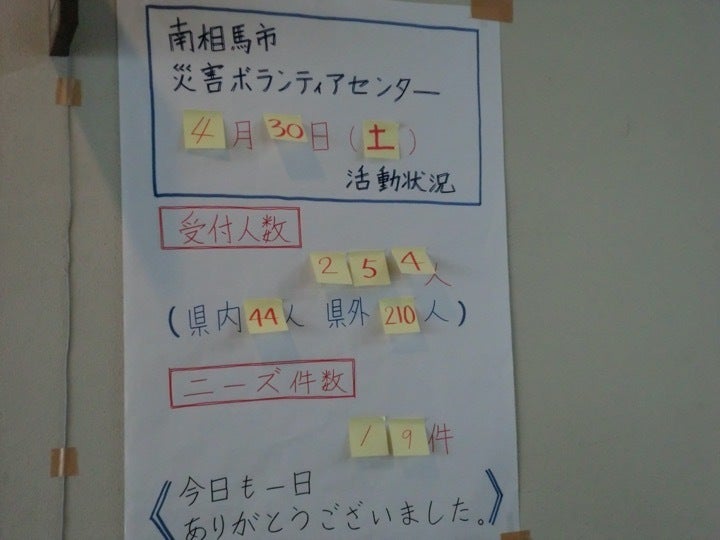 南相馬市
災害ボランティアセンター
4月30日(土)
活動状況
受付人数
254人
(県内44人 県外210人)
ニーズ件数
19件
《今日も一日
ありがとうございました。》